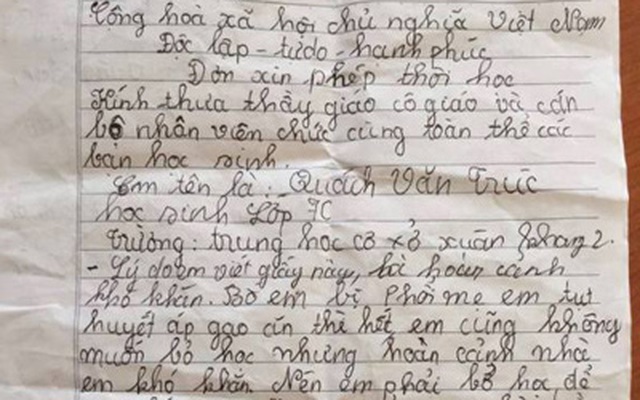 Cộng hoà xã hội chủ nghĩa Việt Nam
Độc lập - tự do - hạnh phúc
Đơn xin phép thôi học
Kính thưa thầy giáo cô giáo và cán
bộ nhân viên chức cùng toàn thể các
bạn học sinh.
Em tên là: Quách Văn Trúc
học sinh Lớp 7C
Trường: trung học cơ xở xuân phang 2.
- Lý do em viết giấy này, là hoàn cảnh
khó khăn. Bố em bị phổi mẹ em tụt
huyết áp gạo ăn thì hết em cũng không
muốn bỏ học nhưng hoàn cảnh nhà
em khó khăn. Nên em phải bỏ học để